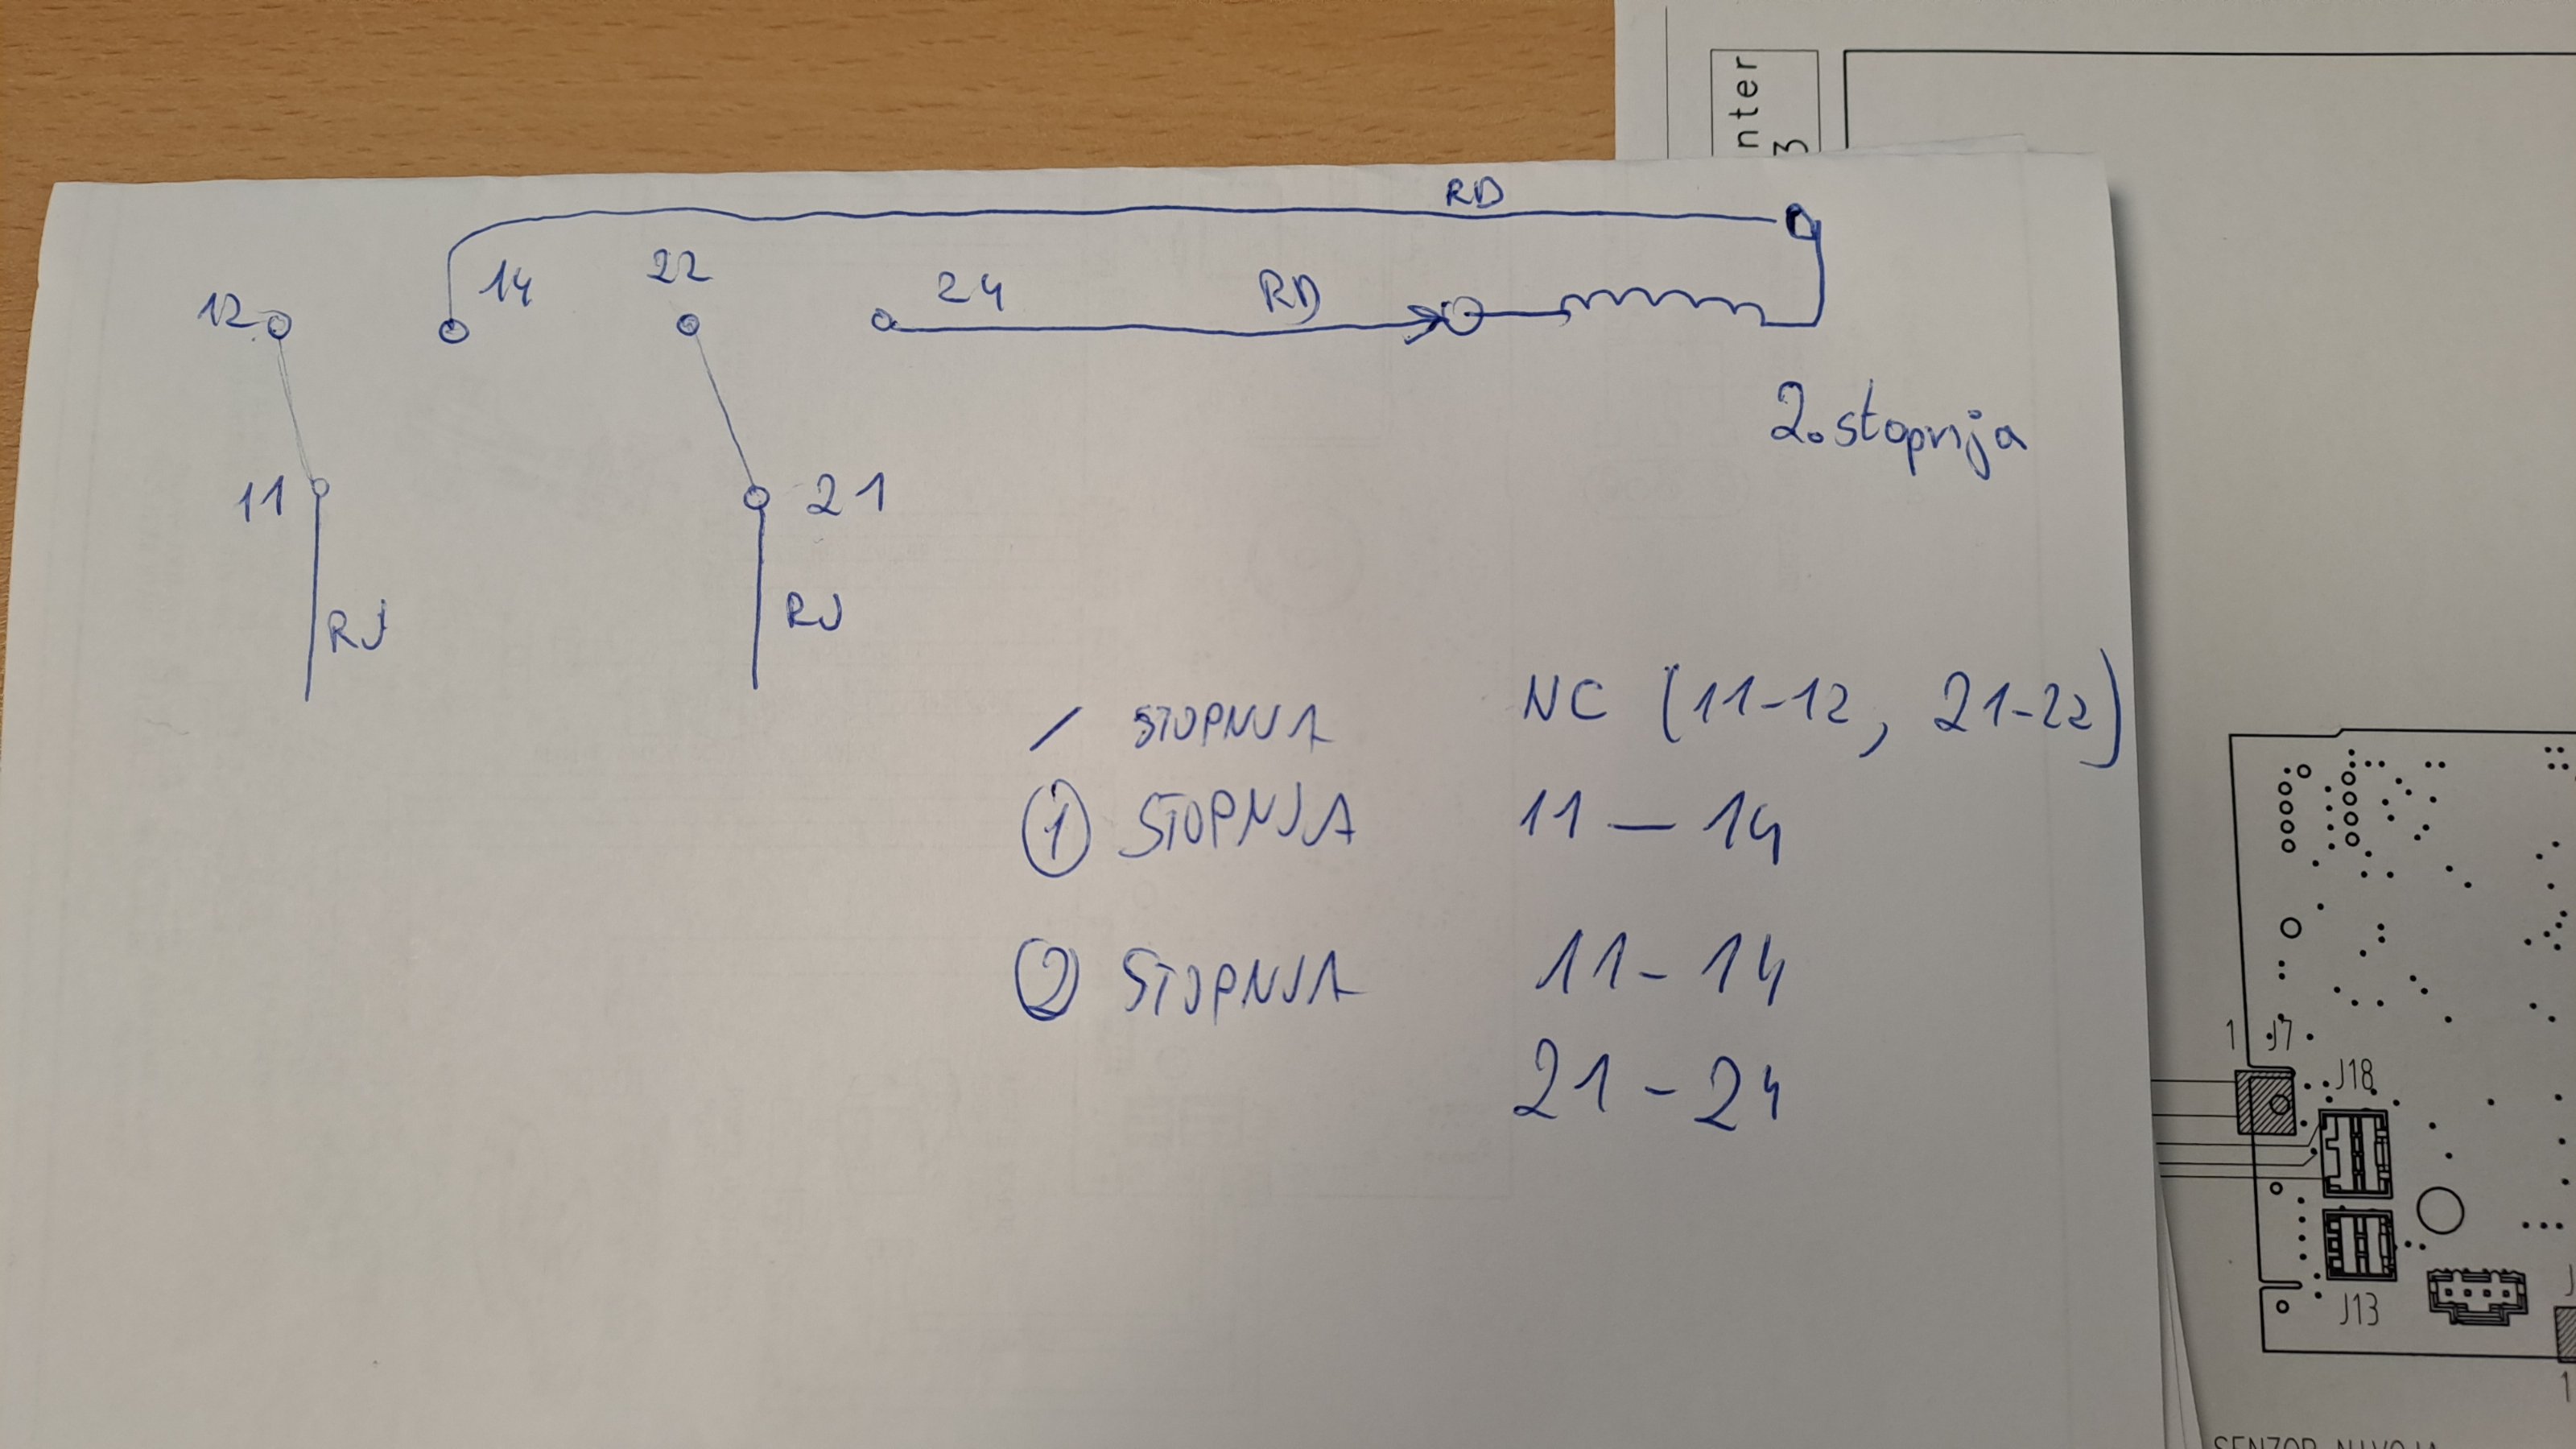 nter
3
RD
12
14
22
24
RD
2.stopnja
11
21
RJ
RJ
/ STOPNJA NC (11-12, 21-22)
1 STOPNJA 11 — 14
2 STOPNJA 11 - 14
21 - 24
1 J7
J18
J13
J
1
SENZOR NIVOJA